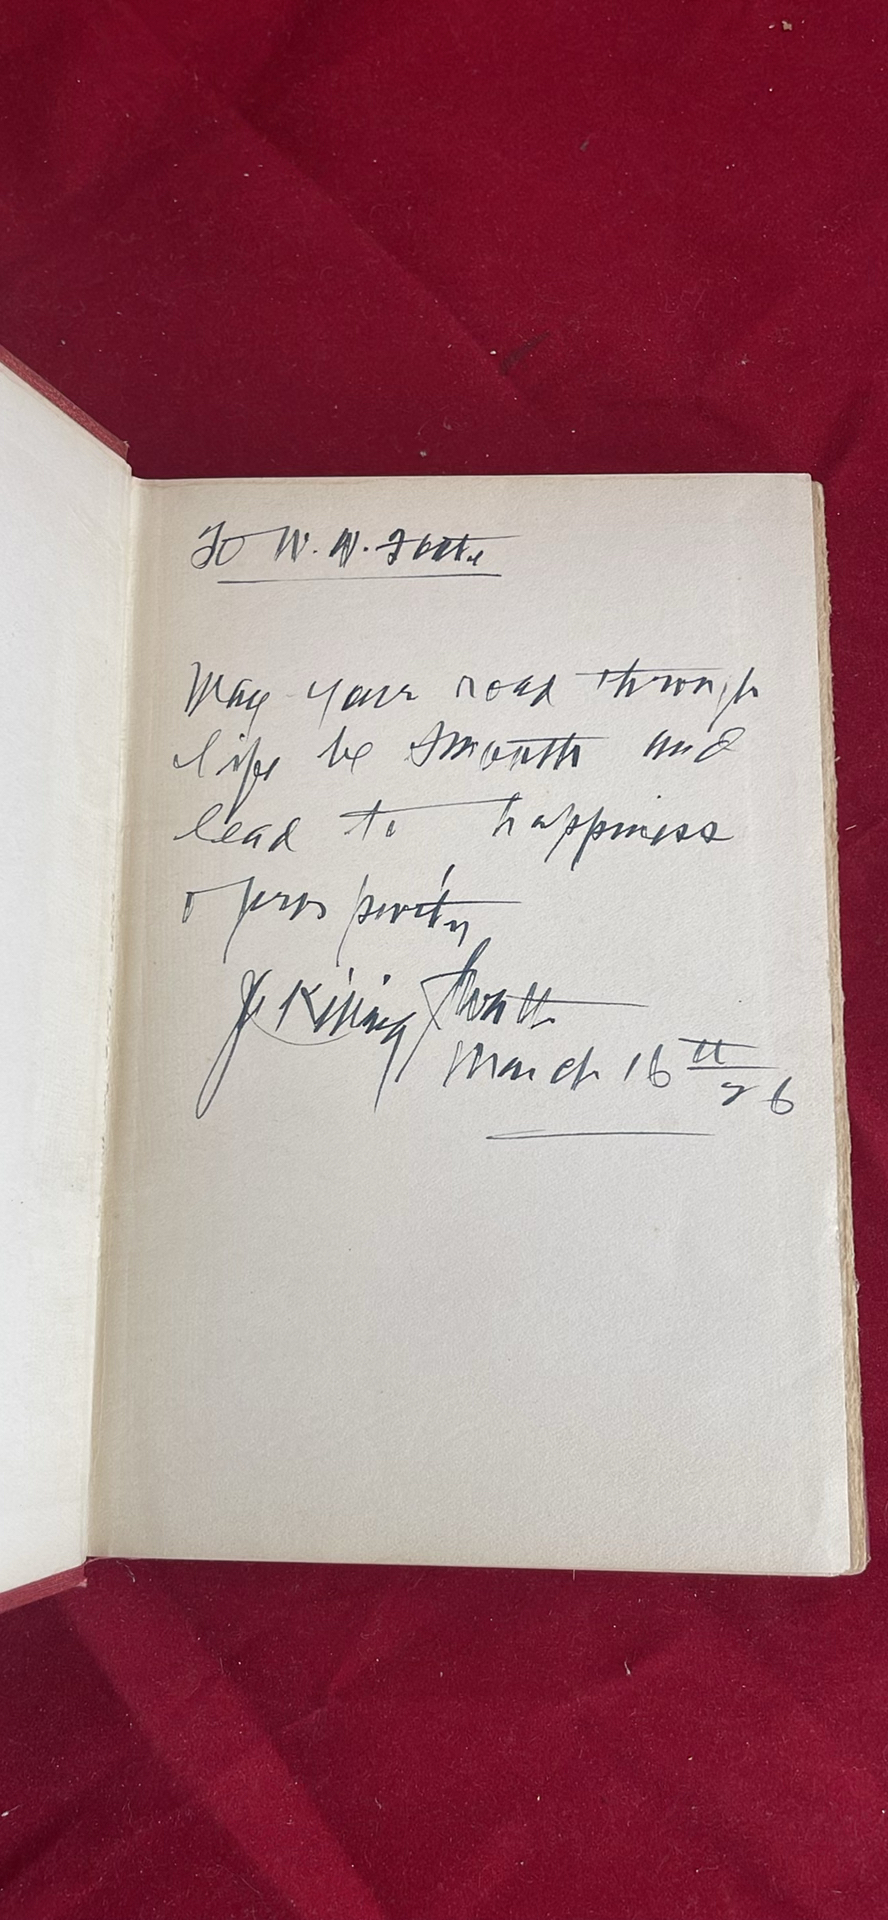 To W. W. Foote
May your road through
life be smooth and
lead to happiness
& prosperity
March 16th
26